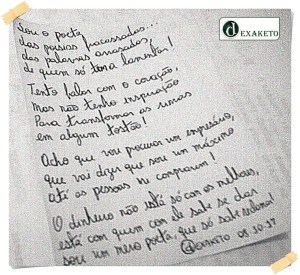 dEXAKETO
Sou o poeta
das poesias fracassadas...
das palavras arrasadas,
de quem só tem a lamentar!
Tento falar com o coração,
Mas não tenho inspiração
Para transformar as rimas
em algum tostão!
Acho que vou procurar um empresário,
que vai dizer que sou um máximo
até as pessoas me comprarem!
O dinheiro não está só com os melhores,
está com quem com ele sabe se dar
sou um mero poeta, que só sabe
@DEXAKETO 08.10.17